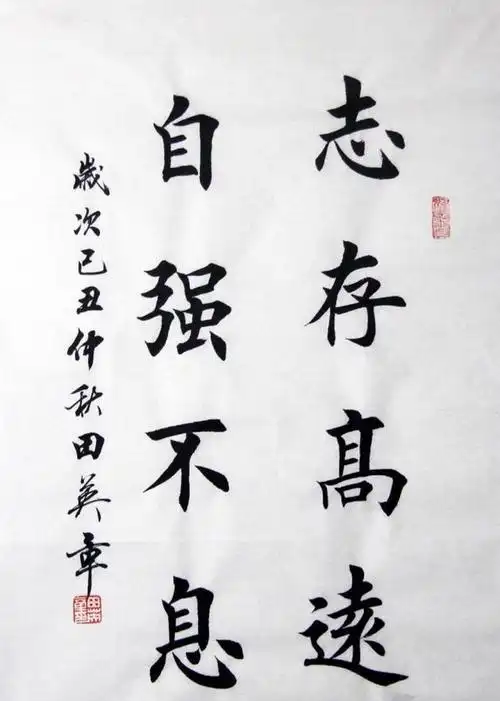 志存髙遠
自强不息
歲次己丑仲秋田英章